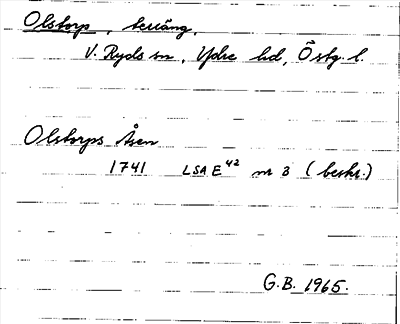 Olstorp, terräng,
V. Ryds sn, Ydre hd, Östg. l.
Olstorps Åsen
1741 LSA E⁴² nr 3 (beskr.)
G.B. 1965.